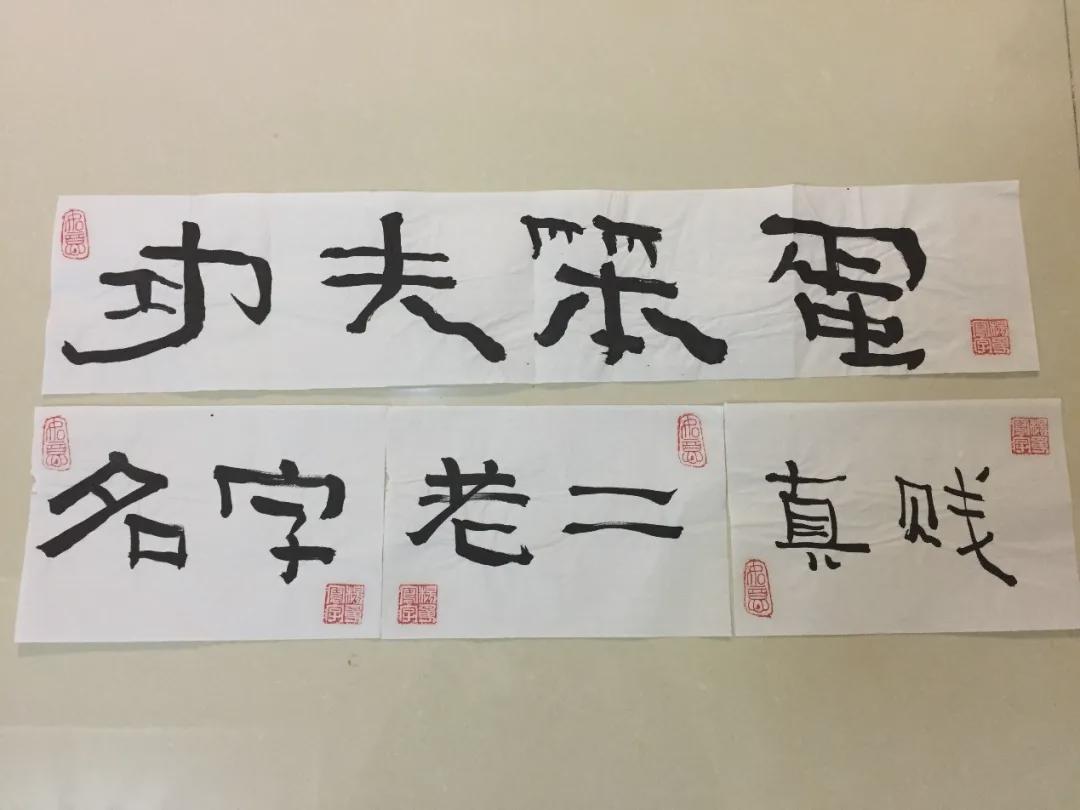 功夫笨蛋
名字 老二 真贱